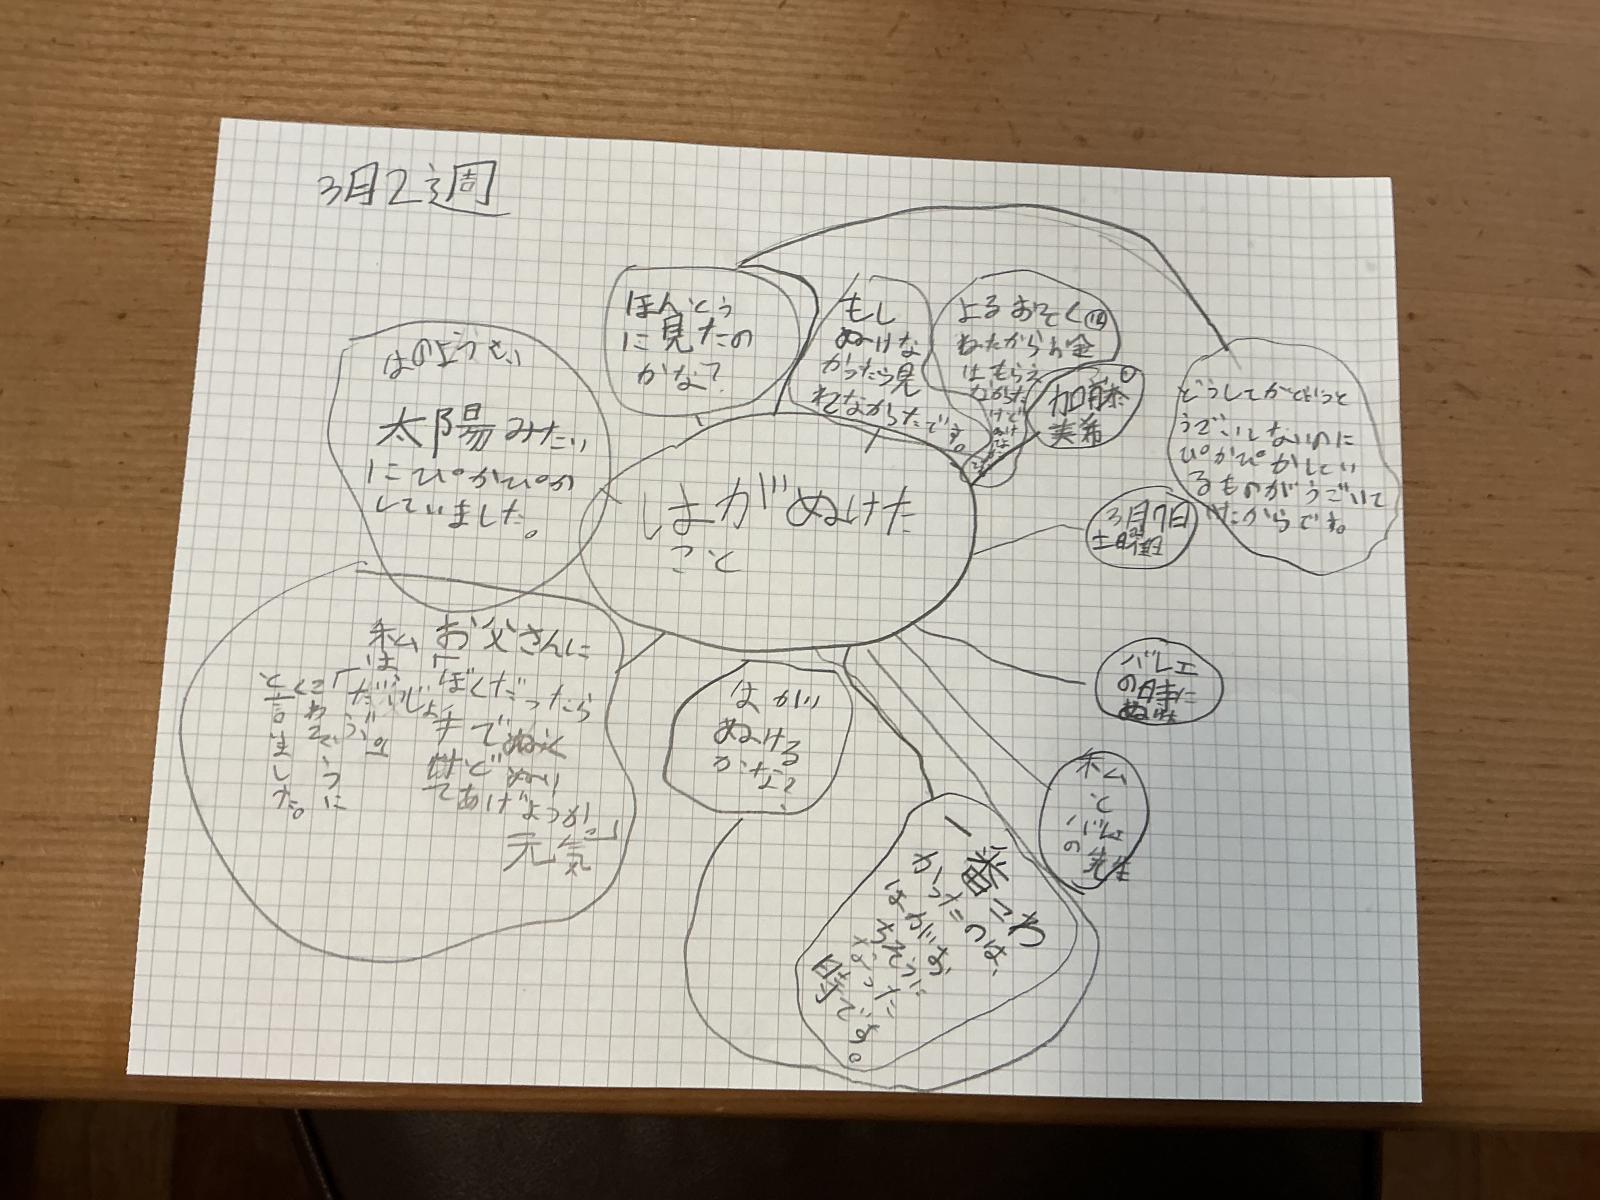 3月2週
はのようせい
太陽みたい
にぴかぴか
していました。
ほんとう
に見たの
かな?
もし
ぬけな
かったら見
れてなかったです。
よるおそく
ねたからお金
はもらえ
なかった
けど
加藤
実希
どうしてかというと
うごいてないのに
ぴかぴかしてい
るものがうごいて
いたからです。
はがぬけた
こと
3月7日
土曜日
バレエ
の時に
ぬけた
私
と
バレエ
の先生
はがい
ぬける
かな?
一番こわ
かったのは、
はがぬ
けそうに
なった
時です。
私お父さんに
は「ぼくだったら
手でぬく
けどぬい
てあげようか」
元気
「だいじょうぶ。」
と言われました。